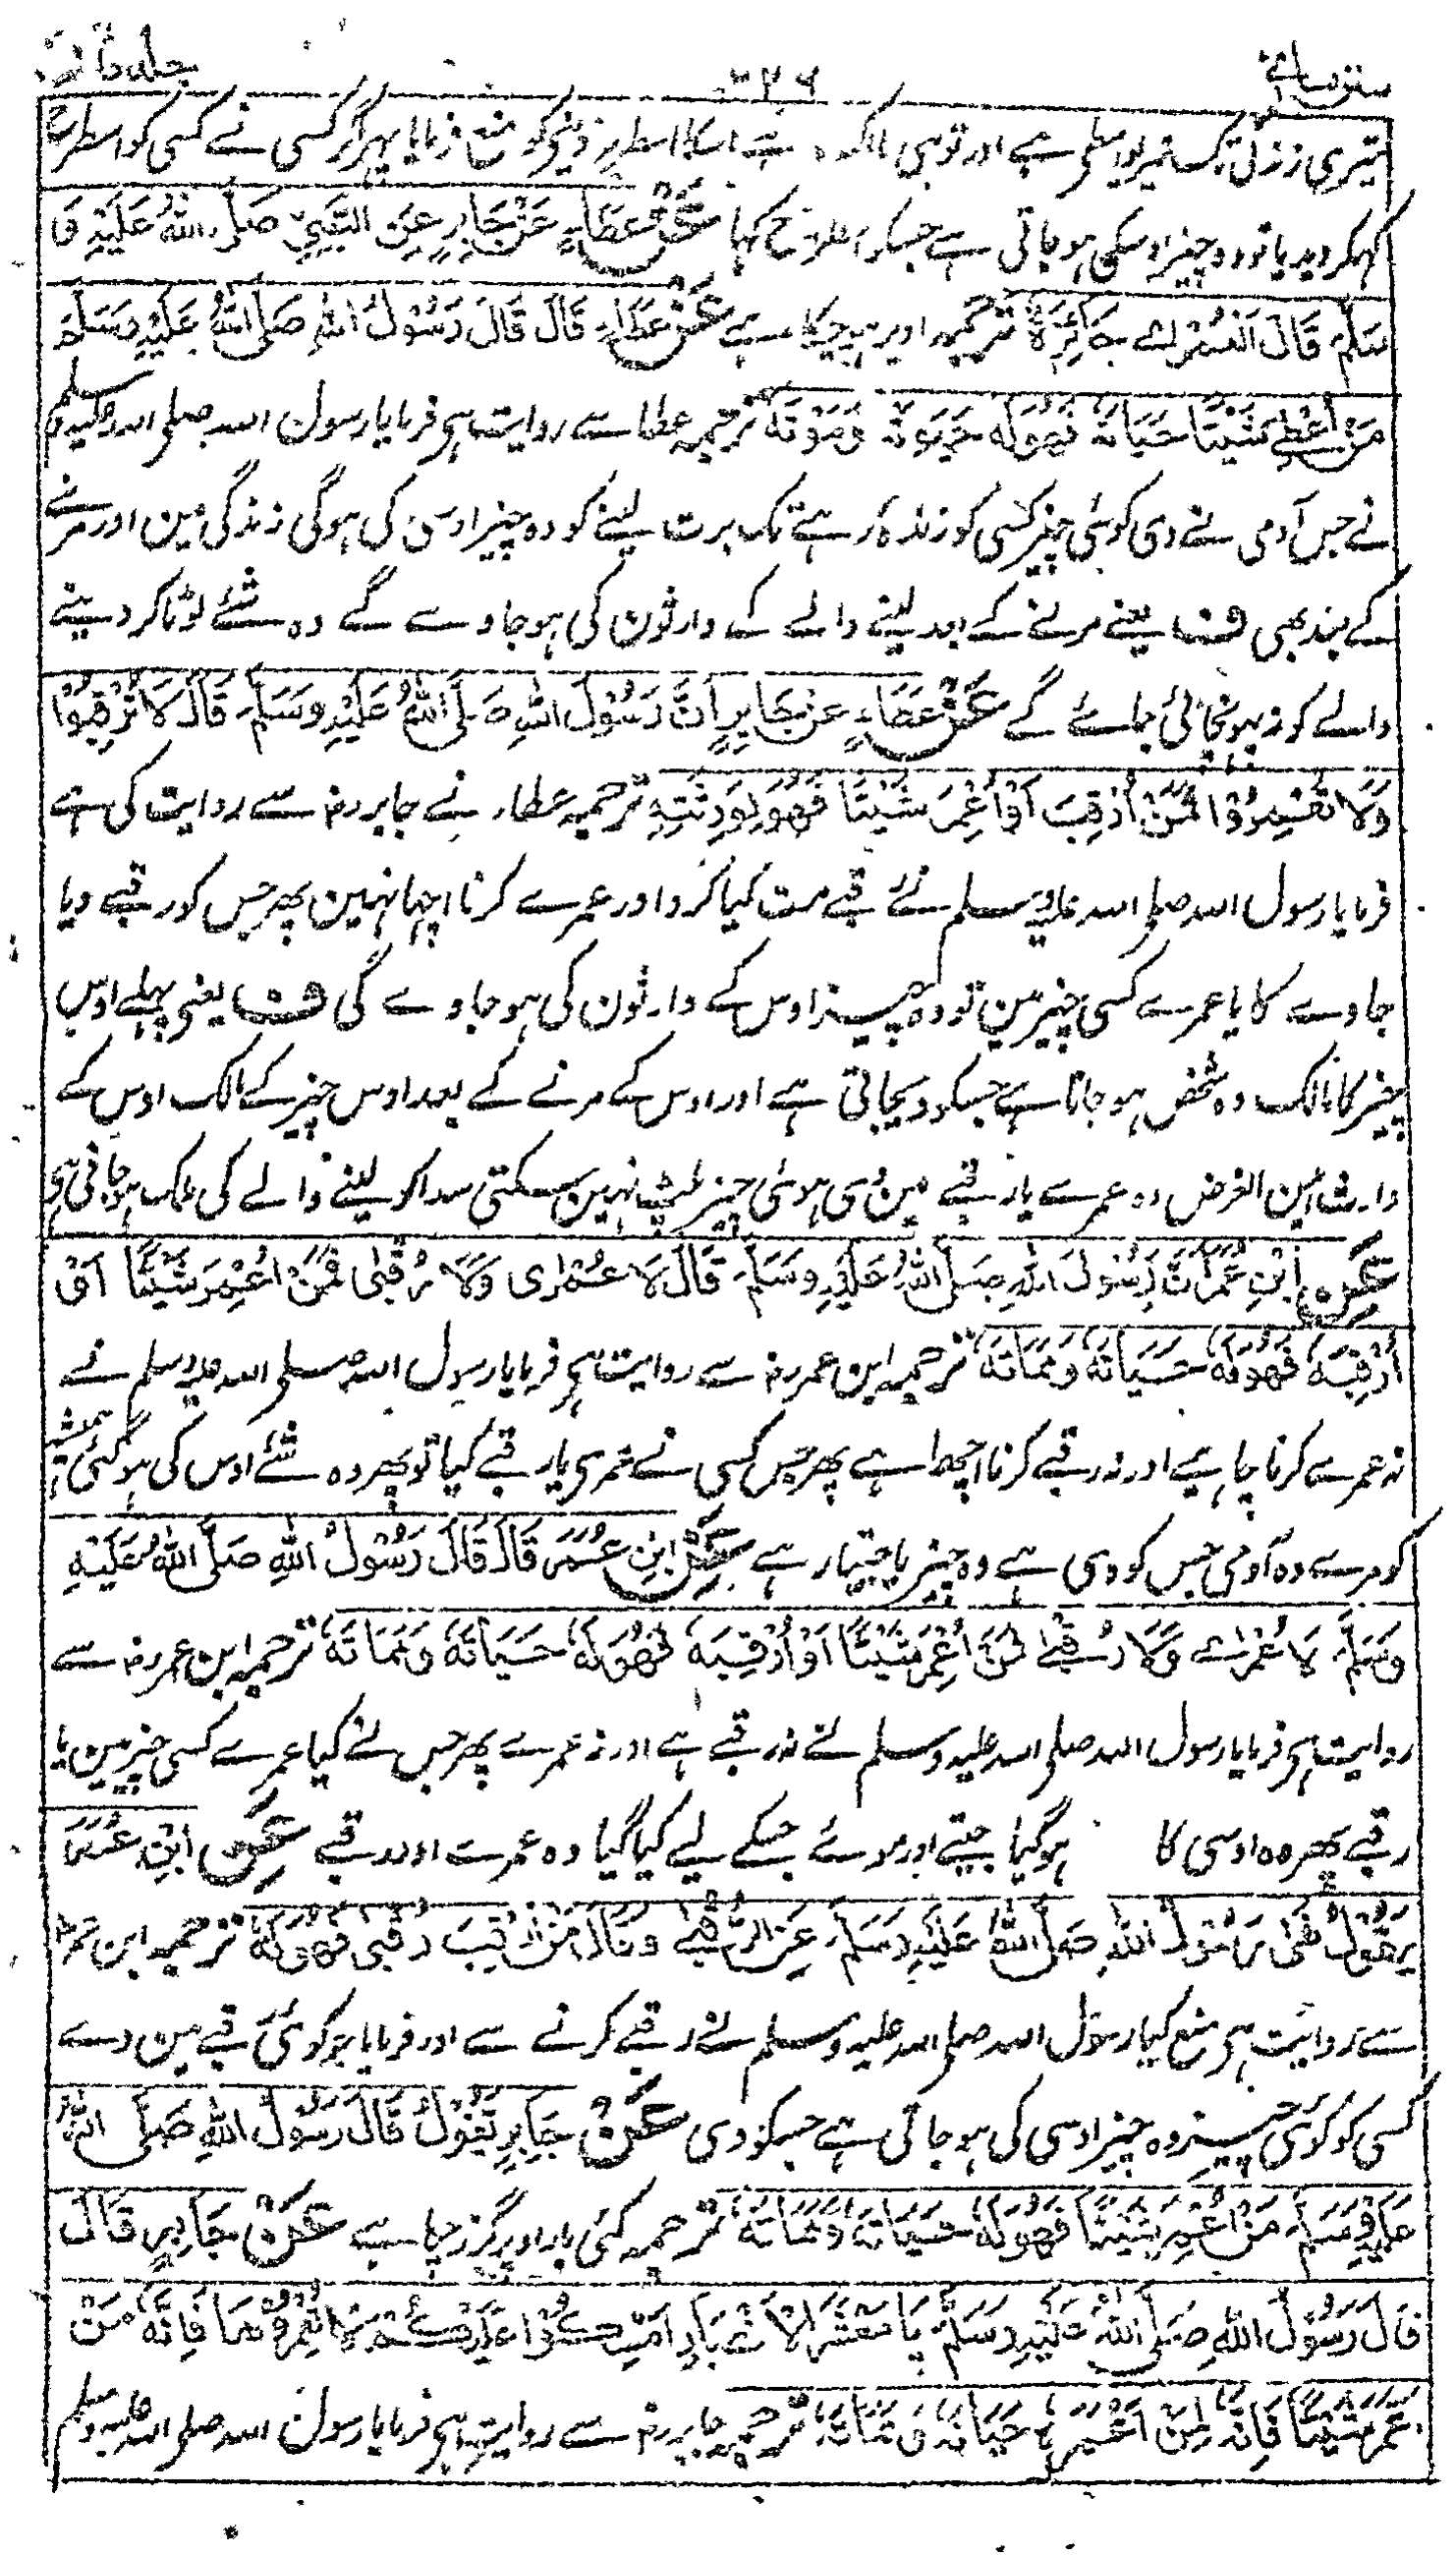 سنن نسائی ٢٢٦ جلد ثانے
تیری زندگی تک تیرلو اصلی ہے اور تو ہی مالک ہے اسکا اسطرح دینیکو منع فرمایا پہر اگر کسی نے کسی کو اسطرح
کہکر دیدیا تو وہ چیز اوسکی ہو جاتی ہے جسکو اسطرح کہا عَنْ عَطَاءٍ عَنْ جَابِرٍ عَنِ النَّبِيِّ صَلَّى اللهُ عَلَيْهِ وَ
سَلَّمَ قَالَ الْعُمْرٰے جَائِزَةٌ ترجمہ اوپر ہو چکا ہے عَنْ عَطَاءٍ قَالَ قَالَ رَسُوْلُ اللهِ صَلَّى اللهُ عَلَيْهِ وَسَلَّمَ
مَنْ اُعْطِيَ شَيْئًا حَيَاتَهٗ فَهُوَ لَهٗ حَيٰوتَهٗ وَمَوْتَهٗ ترجمہ عطا سے روایت ہی فرمایا رسول اللہ صلی اللہ علیہ وسلم
نے جس آدمی نے دی کوئی چیز کسی کو زندہ رہے تک برت لینے کو وہ چیز اوسی کی ہوگی زندگی مین اور مرنے
کے بعد بھی ف یعنے مرنے کے بعد لینے والے کے وارثون کی ہو جاوے گے وہ شئے لوٹا کر دینے
والے کو نہ پہونچائی جائے گے عَنْ عَطَاءٍ عَنْ جَابِرٍ اَنَّ رَسُوْلَ اللهِ صَلَّى اللهُ عَلَيْهِ وَسَلَّمَ قَالَ لَا تُرْقِبُوْا
وَلَا تُعْمِرُوْا فَمَنْ اُرْقِبَ اَوْ اُعْمِرَ شَيْئًا فَهُوَ لِوَرَثَتِهٖ ترجمہ عطاء نے جابر رض سے روایت کی ہے
فرمایا رسول اللہ صلی اللہ علیہ وسلم نے رقبے مت کیا کرو اور عمرے کرنا اچہا نہین پھر جس کو رقبے دیا
جاوے گا یا عمرے کسی چیز مین تو وہ چیز اوس کے وارثون کی ہو جاوے گی ف یعنی پہلے اوس
چیز کا مالک وہ شخص ہو جاتا ہے جسکو دیجاتی ہے اور اوس کے مرنے کے بعد اوس چیز کے مالک اوس کے
وارث ہین الغرض وہ عمرے یا رقبے مین دی ہوئی چیز پلٹ نہین سکتی سدا کو لینے والے کی ملک ہو جاتی ہی
عَنِ ابْنِ عُمَرَ اَنَّ رَسُوْلَ اللهِ صَلَّى اللهُ عَلَيْهِ وَسَلَّمَ قَالَ لَا عُمْرٰى وَلَا رُقْبٰى فَمَنْ اُعْمِرَ شَيْئًا اَوْ
اُرْقِبَهٗ فَهُوَ لَهٗ حَيَاتَهٗ وَمَمَاتَهٗ ترجمہ ابن عمر رض سے روایت ہی فرمایا رسول اللہ صلی اللہ علیہ وسلم نے
نہ عمرے کرنا چاہیے اور نہ رقبے کرنا اچھا ہے پھر جس کسی نے عمری یا رقبے کیا تو پھر وہ شئے اوس کی ہو گئی ہمیشہ
کو مرے وہ آدمی جس کو دی ہے وہ چیز یا جیتا رہے عَنِ ابْنِ عُمَرَ قَالَ قَالَ رَسُوْلُ اللهِ صَلَّى اللهُ عَلَيْهِ
وَسَلَّمَ لَا عُمْرٰے وَلَا رُقْبٰے فَمَنْ اُعْمِرَ شَيْئًا اَوْ اُرْقِبَهٗ فَهُوَ لَهٗ حَيَاتَهٗ وَمَمَاتَهٗ ترجمہ ابن عمر رض سے
روایت ہی فرمایا رسول اللہ صلی اللہ علیہ وسلم نے نہ رقبے ہے اور نہ عمرے پھر جس نے کیا عمرے کسی چیز مین یا
رقبے پھر وہ اوسی کا ہو گیا جیتے اور مرے جسکے لیے کیا گیا وہ عمرے اور رقبے عَنِ ابْنِ عُمَرَ
يَقُوْلُ نَهٰى رَسُوْلُ اللهِ صَلَّى اللهُ عَلَيْهِ وَسَلَّمَ عَنِ الرُّقْبٰے وَقَالَ مَنْ اُرْقِبَ رُقْبٰى فَهُوَ لَهٗ ترجمہ ابن عمر رض
سے روایت ہی منع کیا رسول اللہ صلی اللہ علیہ وسلم نے رقبے کرنے سے اور فرمایا جو کوئی رقبے مین دے
کسی کو کوئی چیز وہ چیز اوسی کی ہو جاتی ہے جسکو دی عَنْ جَابِرٍ يَقُوْلُ قَالَ رَسُوْلُ اللهِ صَلَّى اللهُ
عَلَيْهِ وَسَلَّمَ مَنْ اُعْمِرَ شَيْئًا فَهُوَ لَهٗ حَيَاتَهٗ وَمَمَاتَهٗ ترجمہ کئی بار اوپر گزر چکا ہے عَنْ جَابِرٍ قَالَ
قَالَ رَسُوْلُ اللهِ صَلَّى اللهُ عَلَيْهِ وَسَلَّمَ يَا مَعْشَرَ الْاَنْصَارِ اَمْسِكُوْا عَلَيْكُمْ لَا تُعْمِرُوْهَا فَاِنَّهٗ مَنْ
اُعْمِرَ شَيْئًا فَاِنَّهٗ لِمَنْ اُعْمِرَهٗ حَيَاتَهٗ وَمَمَاتَهٗ ترجمہ جابر رض سے روایت ہی فرمایا رسول اللہ صلی اللہ علیہ وسلم